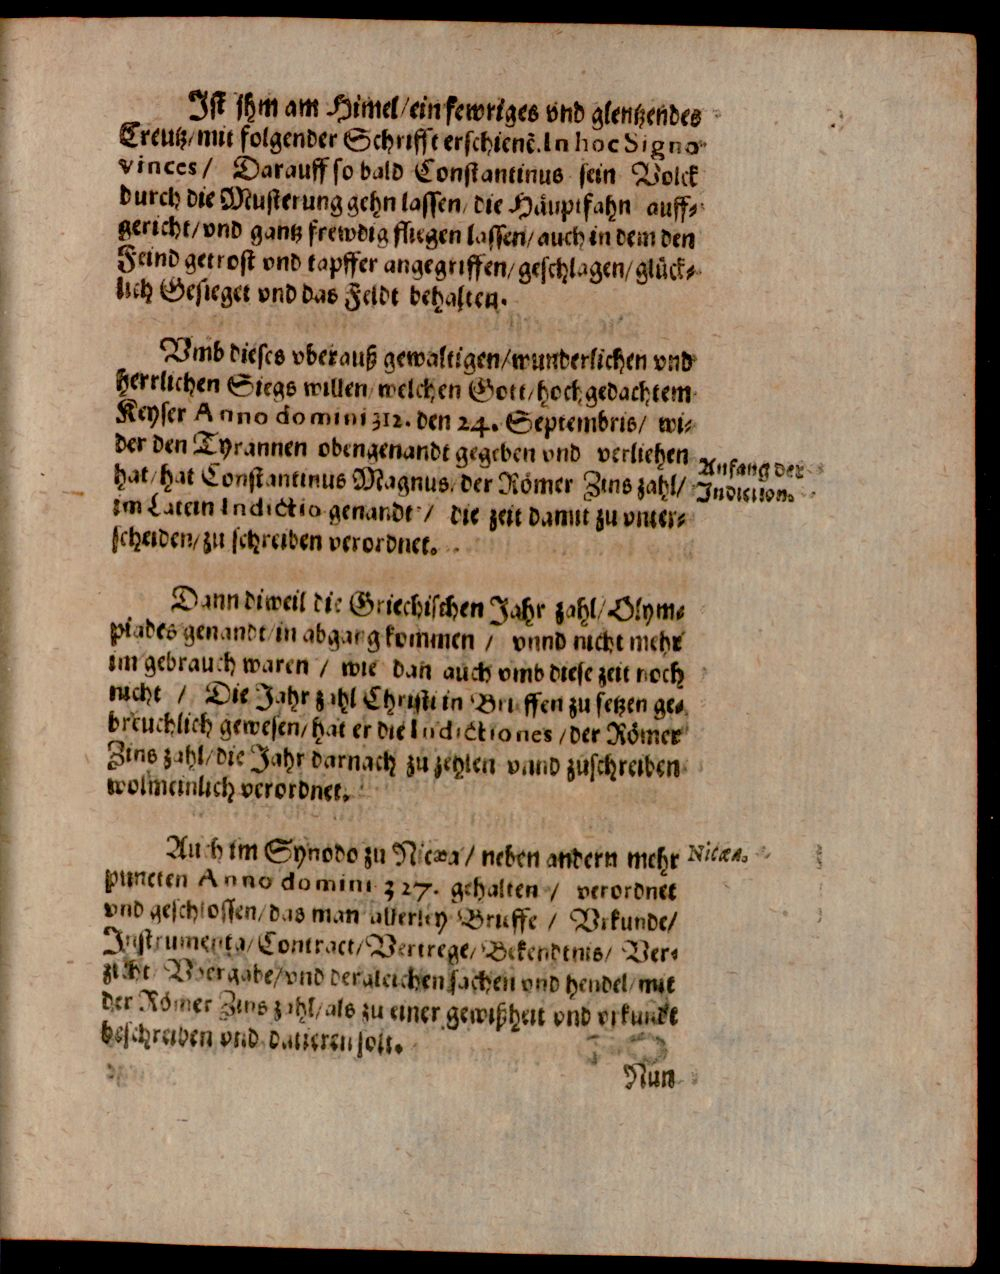 Ist jhm am Himel/ein fewriges vnd glentzendes
Creutz/mit folgender Schrifft erschienẽ. In hoc Signo
vinces/ Darauff so bald Constantinus sein Volck
durch die Musterung gehn lassen/die Häuptfahn auff-
gericht/vnd gantz frewdig fliegen lassen/auch in dem den
Feind getrost vnd tapffer angegriffen/geschlagen/glück-
lich Gesieget vnd das Feldt behalten.
Vmb dieses vberauß gewaltigen/wunderlichen vnd
herrlichen Siegs willen/welchen Gott/hochgedachtem
Keyser Anno domini 312. den 24. Septembris/ wi-
der den Tyrannen obengenandt gegeben vnd verliehen
hat/hat Constantinus Magnus/der Römer Zins zahl/
im Latein Indictio genandt / die zeit damit zu vnter-
scheiden/zu schreiben verordnet.
Anfang der
Indiction.
Dann diweil die Griechischen Jahr zahl/Olym-
piades genandt/in abgang kommen / vnnd nicht mehr
im gebrauch waren / wie dan auch vmb diese zeit noch
nicht / Die Jahr zahl Christi in Brieffen zu setzen ge-
breuchlich gewesen/hat er die Indictiones/der Römer
Zins zahl/die Jahr darnach zu zehlen vnnd zuschreiben
wolmeinlich verordnet.
Auch im Synodo zu Nicæa/ neben andern mehr
puncten Anno domini 327. gehalten / verordnet
vnd geschlossen/das man allerley Brieffe / Vrkunde/
Instrumenta/Contract/Vertrege/Bekendtnis/ Ver-
zicht/Vbergabe/vnd dergleichen sachen vnd hendel/mit
der Römer Zins zahl/als zu einer gewißheit vnd vrkundt
beschreiben vnd datieren solt.
Nicæa.
Nun